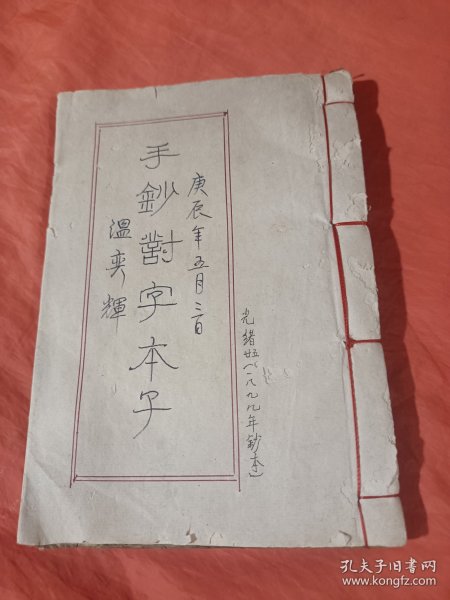 光緒廿五（一八九九年鈔本）
庚辰年五月三日
手鈔對字本子
溫奕輝
孔夫子旧书网
www.kongfz.com